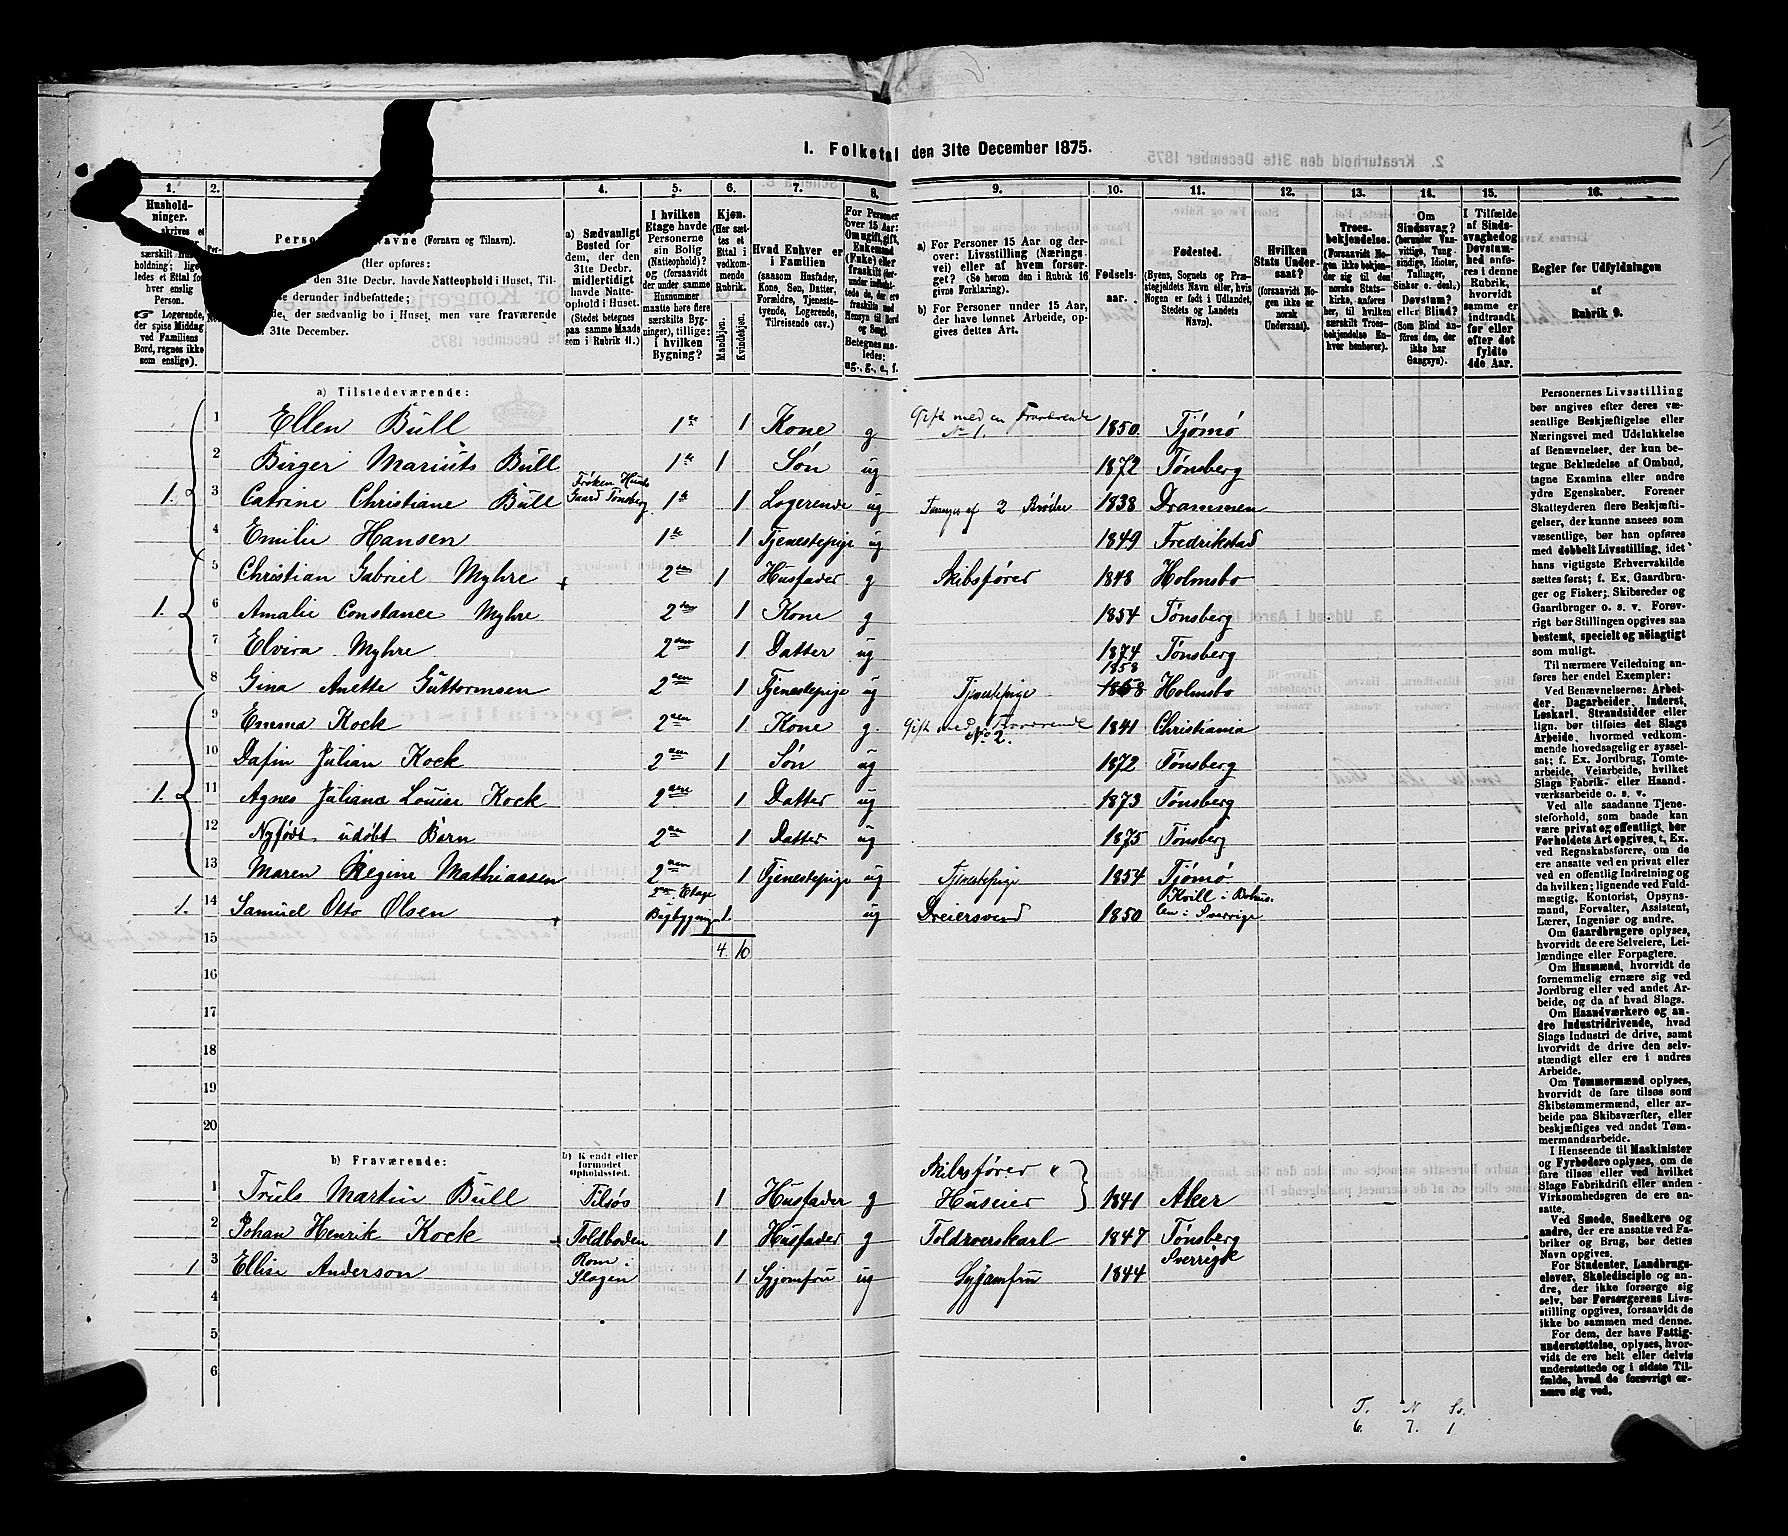 I. Folketal den 31te December 1875.
1. 2. 4. 5. 6. 7. 8. 9. 10. 11. 12. 13. 14. 15. 16.
Hushold-
ninger.
holdning; lige
ledes et Ettal for
hver enslig
Person.
☞ Logerende,
der spise Middag
ved Familiens
Bord, regnes ikke
som enslige).
(Fornavn og Tilnavn).
(Her opføres:
den 31te Decbr. havde Natteophold i Huset, Til-
derunder indbefattede;
der sædvanlig bo i Huset, men vare fraværende
31te December.
a) Sædvanligt
Bosted for
dem, der den
31te Decbr.
midlertidigt
havde Natte-
ophold i Huset.
(Stedet betegnes
paa samme Maade
som i Rubrik 11.)
I hvilken
Etage havde
Personerne
sin Bolig
(Natteophold)?
og (forsaavidt
der under samme
Husnummer
maatte høre flere
særskilte Byg-
ninger), tillige:
i hvilken
Bygning?
Kjøn.
(Her sæt-
tes et
Ettal i
vedkom-
mende
Rubrik.
Mandkjøn.
Kvindekjøn.
Hvad Enhver er
i Familien
(saasom Husfader,
Kone, Søn, Datter,
Forældre, Tjeneste-
tyende, Logerende,
Tilreisende osv.)
For Personer
over 15 Aar:
Om ugift, gift,
Enkemand
(Enke) eller
fraskilt
Betegnes saa-
ledes:
ug., g., e., f.
a) For Personer 15 Aar og der-
over: Livsstilling (Nærings-
vei) eller af hvem forsør-
get? (Se herom den i Rubrik 16
givne Forklaring).
b) For Personer under 15 Aar,
der have lønnet Arbeide, op-
gives dettes Art.
Fødsels-
aar.
Fødested.
(Byens, Sognets og Præ-
stegjeldets Navn eller, hvis
Nogen er født i Udlandet,
Stedets og Landets
Navn).
Hvilken
Stats Under-
saat?
(forsaavidt No-
gen ikke er
norsk
Undersaat).
Troes-
bekjendelse.
(Forsaavidt No-
gen ikke beken-
der sig til den
norske Stats-
kirke, anføres
her, til hvilken
særskilt Troes-
bekjendelse En-
hver henhører).
Om
Sindssvag?
(herunder Van-
vittige, Tung-
sindige, Idioter,
Tullinger,
Sinker o. desl.)
Døvstum?
eller Blind?
(Som Blind an-
føres den, der
ikke har
Gangsyn).
I Tilfælde
af Sinds-
svaghed og
Døvstum-
hed anfø-
res i denne
Rubrik,
hvorvidt
samme er
indtraadt
før eller
efter det
fyldte
4de Aar.
Regler for Udfyldningen
af
Rubrik 9.
a) Tilstedeværende:
1 Ellen Bull 1ste 1 Kone g Gift med en Fraværende No 1. 1850. Tjømø
2 Birger Marius Bull 1ste 1 Søn ug 1872 Tønsberg
1. 3 Catrine Christiane Bull Frøken Gaard Tønsberg 1ste 1 Logerende ug af 2 Brødre 1838 Drammen
4 Emilie Hansen 1ste 1 Tjenestepige ug 1849 Fredrikstad
5 Christian Gabriel Myhre 2den 1 Husfader g Skibsfører 1848 Holmsbo
1. 6 Amalie Constance Myhre 2den 1 Kone g 1854 Tønsberg
7 Elvira Myhre 2den 1 Datter ug 1874 Tønsberg
1858
8 Gina Anette Guttormsen 2den 1 Tjenestepige ug Tjenestepige 1858 Holmsbo
9 Emma Kock 2den 1 Kone g. Gift med Fraværende No 2. 1841 Christiania
10 Dafin Julian Kock 2den 1 Søn ug 1872 Tønsberg
1. 11 Agnes Juliane Louise Kock 2den 1 Datter ug 1873 Tønsberg
12 Nyfødt udøbt Barn 2den 1 Datter ug 1875 Tønsberg
13 Maren Regine Mathiassen 2den 1 Tjenestepige ug Tjenestepige 1854 Tjømø
1. 14 Samuel Otto Olsen Etage Bagbygning 1. ug Dreiersvend 1850 Kvill i Sverrige
15 4 10
16
17
18
19
20
b) Fraværende:
b) Kjendt eller
formodet
Opholdssted.
1 Truls Martin Bull Tilsøs 1 Husfader g Skibsfører & Huseier 1841 Aker
2 Johan Henrik Kock Toldboden 1 Husfader g Toldroerskarl 1847 Tønsberg
1 3 Ellise Anderson Rom i Slagen 1 Syjomfru ug Syjomfru 1844 Sverrige
4
5
6
T. N. Sv.
6. 7. 1
Personernes Livsstilling
bør angives efter deres væ-
sentlige Beskjæftigelse eller
Næringsvei med Udelukkelse
af Benævnelser, der kun be-
tegne Beklædelse af Ombud,
tagne Examina eller andre
ydre Egenskaber. Forener
Skatteyderen flere Beskjæfti-
gelser, der kunne ansees som
væsentlige, bør han opføres
med dobbelt Livsstilling, idet
hans vigtigste Erhvervskilde
sættes først; f. Ex. Gaardbru-
ger og Fisker; Skibsreder og
Gaardbruger o. s. v. Forøv-
rigt bør Stillingen opgives saa
bestemt, specielt og nöiagtigt
som muligt.
Til nærmere Veiledning an-
føres her endel Exempler:
Ved Benævnelserne: Arbei-
der, Dagarbeider, Inderst,
Løskarl, Strandsidder eller
lign. bør tilføies det Slags
Arbeide, hvormed vedkom-
mende hovedsagelig er syssel-
sat; f. Ex. Jordbrug, Tomte-
arbeide, Veiarbeide, hvilket
Slags Fabrik- eller Haand-
værksarbeide o. s. v.
Ved alle saadanne Tjene-
steforhold, som baade kan
være privat og offentligt, bør
Forholdets Art opgives, t. Ex.
ved Regnskabsførere, om de
ere ansatte ved en privat eller
ved en offentlig Indretning og
da hvilken; lignende ved Fuld-
mægtig, Kontorist, Opsyns-
mand, Forvalter, Assistent,
Lærer, Ingeniør og andre.
Om Gaardbrugere oplyses,
hvorvidt de ere Selveiere, Lei-
lændinge eller Forpagtere.
Om Husmænd, hvorvidt de
fornemmelig ernære sig ved
Jordbrug eller ved andet Ar-
beide, og da af hvad Slags.
Om Haandværkere og an-
dre Industridrivende, hvad
Slags Industri de drive, samt
hvorvidt de drive den selv-
stændigt eller ere i andres
Arbeide.
Om Tømmermænd oplyses,
hvorvidt de fare tilsøs som
Skibstømmermænd, eller ar-
beide paa Skibsværfter, eller
beskjæftiges ved andet Tøm-
mermandsarbeide.
I Henseende til Maskinister
og Fyrbødere oplyses, om de
fare tilsøs eller ved hvilket
Slags Fabrikdrift eller anden
Virksomhedsgren de ere an-
satte.
Ved Smede, Snedkere og
andre, der ere ansatte ved Fa-
briker og Brug, bør dettes
Navn opgives.
For Studenter, Landbrugs-
elever, Skoledisciple og an-
dre, der ikke forsørge sig
selv, bør Forsørgerens Livs-
stilling opgives, forsaavidt de
ikke bo sammen med denne.
For dem, der have Fattig-
understøttelse, oplyses, hvor-
vidt de ere helt eller delvis
understøttede og i sidste Til-
fælde, hvad de forøvrigt er-
nære sig ved.